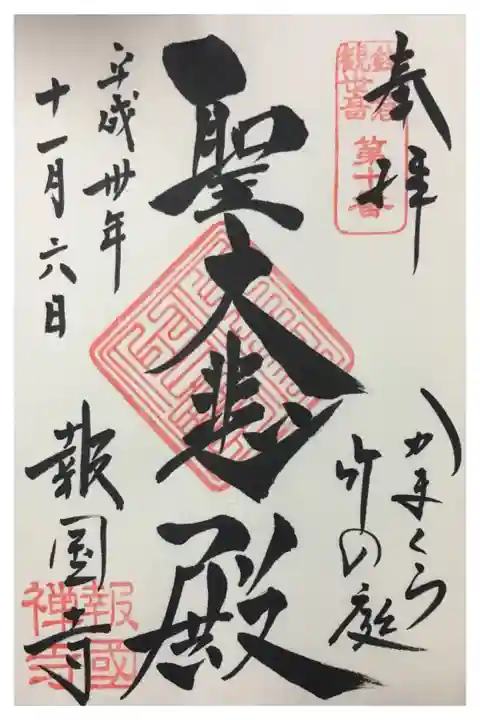 奉拝
鎌倉
観音
第十番
かまくら
竹の庭
聖大悲殿
平成卅年
十一月六日
報国寺
報國
禅寺